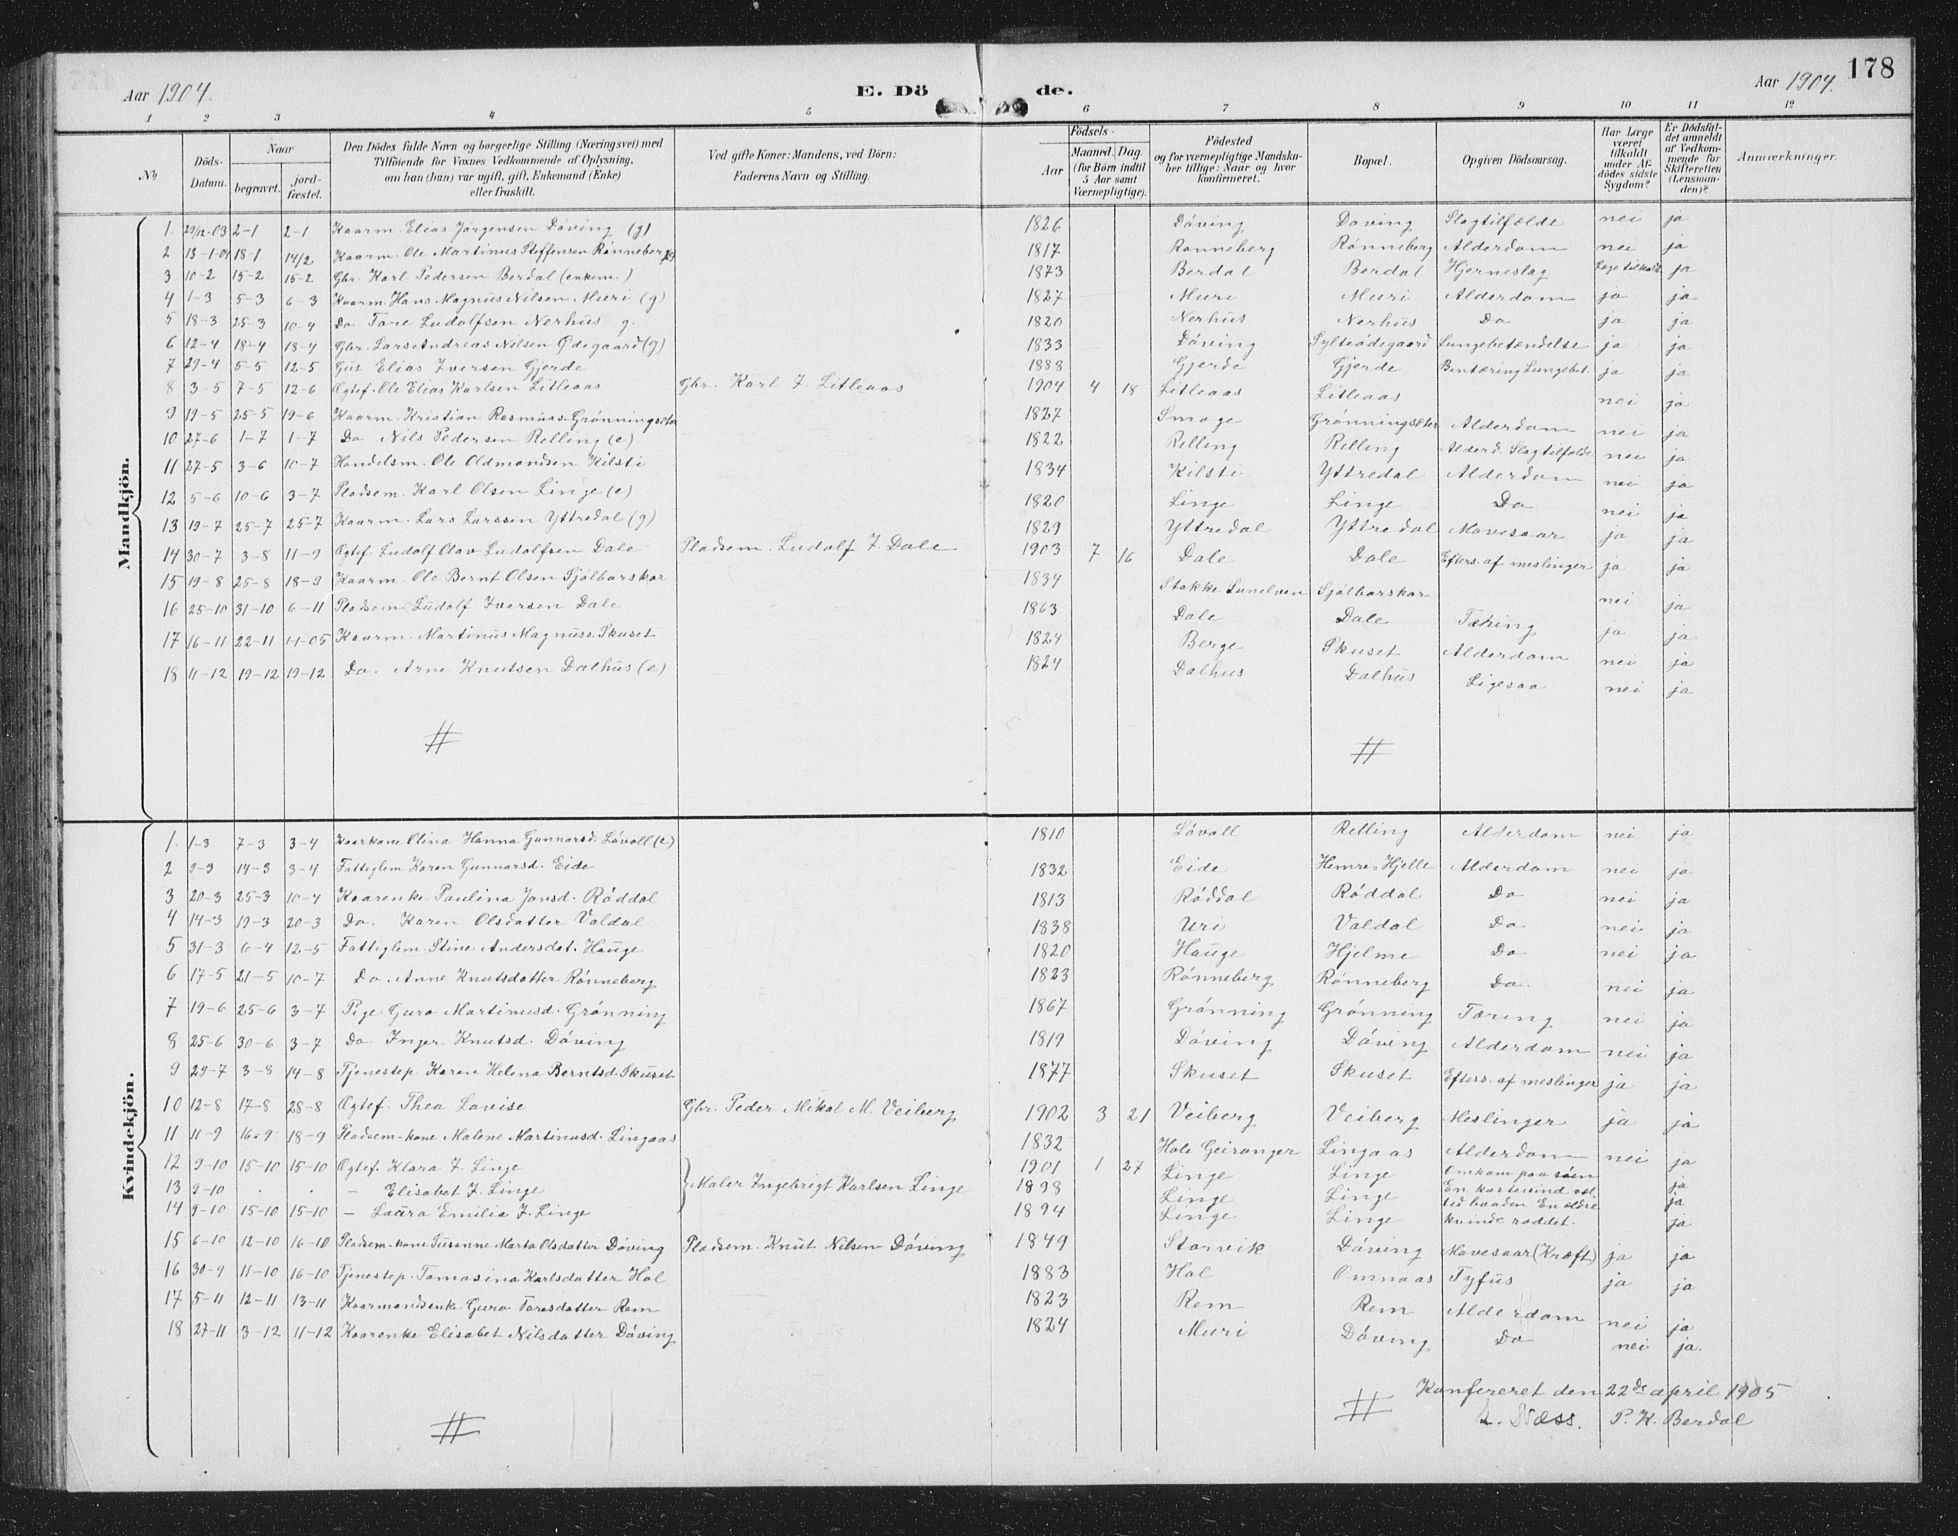 178
Aar 1904. E. Dö de. Aar 1904.
1 2 3 4 5 6 7 8 9 10 11 12
No
Döds-Datum.
Naar
begravet.
jord-fæstet.
Den Dödes fulde Navn og borgerlige Stilling (Næringsvei) med
Tilföiende for Voxnes Vedkommende af Oplysning,
om han (hun) var ugift, gift, Enkemand (Enke)
eller fraskilt.
Ved gifte Koner: Mandens, ved Börn:
Faderens Navn og Stilling.
Födsels-
Aar
Maaned. Dag.
(for Börn indtil
5 Aar samt
Værnepligtige).
Födested
og for værnepligtige Mandska-
ber tillige: Naar og hvor
konfirmeret.
Bopæl.
Opgiven Dödsaarsag.
Har Læge
været
tilkaldt
under Af-
dödes sidste
Sygdom?
Er Dödsfal-
det anmeldt
af Vedkom-
mende for
Skifteretten
(Lensman-
den)?
Anmærkninger.
Mandkjön.
1. 29/12-03 2-1 2-1 Kaarm. Elias Jørgensen Døving (g) 1826 Døving Døving Slagtilfælde nei ja
2 13-1-04 18-1 14/2 Kaarm. Ole Martinus Steffensen Rønneberg 1817 Rønneberg Rønneberg Alderdom nei ja
3 10-2 15-2 15-2 Gbr. Karl Pedersen Berdal (enkem.) 1873 Berdal Berdal Hjerneslag Læge tilkaldt ja
4 1-3 5-3 6-3 Kaarm. Hans Magnus Nilsen Muri (g) 1827 Muri Muri Alderdom ja ja
5 18-3 25-3 10-4 Do Tore Ludolfsen Nerhus g. 1820 Nerhus Nerhus Do ja ja
6 12-4 18-4 18-4 Gbr. Lars Andreas Nilsen Ødegaard (g) 1833 Døving Sylteødegaard Lungebetændelse ja ja
7 29-4 5-5 12-5 Gut Elias Iversen Gjerde 1888 Gjerde Gjerde Bentæring Lungebet. ja ja
8 3-5 7-5 12-6 Ogtef. Ole Elias Karlsen Litleaas Gbr. Karl J. Litleaas 1904 4 18 Litleaas Litleaas nei ja
9 19-5 25-5 19-6 Kaarm. Kristian Rasmuss. Grønningsæter 1827 Smoge Grønningsæter Alderdom nei ja
10 27-6 1-7 1-7 Do Nils Pedersen Relling (e) 1822 Relling Relling Alderd. Slagtilfælde nei ja
11 27-5 3-6 10-7 Handelsm. Ole Oldmondsen Kilsti 1834 Kilsti Yttredal Alderdom nei ja
12 5-6 10-6 3-7 Pladsem. Karl Olsen Linge (e) 1820 Linge Linge Do nei ja
13 19-7 25-7 25-7 Kaarm. Lars Larssen Yttredal (g) 1829 Yttredal Yttredal Mavesaar ja ja
14 30-7 3-8 11-9 Ogtef. Ludolf Olav Ludolfsen Dale Pladsem. Ludolf J. Dale 1903 7 16 Dale Dale Efters. af meslinger ja ja
15 19-8 25-8 18-9 Kaarm. Ole Bernt Olsen Sjølbarskar 1834 Stokke Sunelven Sjølbarskar nei ja
16 25-10 31-10 6-11 Pladsem. Ludolf Iversen Dale 1863 Dale Dale Tæring ja ja
17 16-11 22-11 1-1-05 Kaarm. Martinus Magnuss. Skuset 1824 Berge Skuset Alderdom nei ja
18 11-12 19-12 19-12 Do. Arne Knutsen Dalhus (e) 1824 Dalhus Dalhus Ligesaa nei ja
#
#
Kvindekjön.
1. 1-3 7-3 3-4 Kaarkone Olina Hanna Gunnarsd. Løvoll (e) 1810 Løvoll Relling Alderdom nei ja
2 9-3 14-3 3-4 Fattiglem Karen Gunnarsd. Eide 1832 Eide Hemre-Hjelle Alderdom nei ja
3 20-3 25-3 10-4 Kaarenke Paulina Jonsd. Røddal 1813 Røddal Røddal Do nei ja
4 14-3 19-3 20-3 Do. Karen Olsdatter Valdal 1838 Uri Valdal Do nei ja
5 31-3 6-4 12-5 Fattiglem. Stine Andersdat. Hauge 1820 Hauge Hjelme Do nei ja
6 17-5 21-5 10-7 Do. Anne Knutsdatter Rønneberg 1823 Rønneberg Rønneberg Do nei ja
7 19-6 25-6 3-7 Pige Guro Martinusd. Grønning 1867 Grønning Grønning Tæring nei ja
8 25-6 30-6 3-7 Do. Inger Knutsd. Døving 1819 Døving Døving Alderdom nei ja
9 29-7 3-8 14-8 Tjenestep. Karen Helena Berntsd. Skuset 1877 Skuset Skuset Efters. af meslinger ja ja
10 12-8 17-8 28-8 Ogtef. Thea Lovise Gbr. Peder Mikal M. Veiberg 1902 3 21 Veiberg Veiberg Meslinger ja ja
11 11-9 16-9 18-9 Pladsem-kone Malene Martinusd. Lingaas 1832 Hole Geiranger Lingaas Alderdom nei ja
12 9-10 15-10 15-10 Ogtef. Klara J. Linge 1901 1 27 Linge Linge Omkom paa søen ja
13 9-10 . . - Elisabet J. Linge Maler Ingebrigt Karlsen Linge 1898 Linge Linge En kastevind vel- ja
14 9-10 15-10 15-10 - Laura Emilia J. Linge 1894 Linge Linge ted baaden. En ældre kvinde reddet. ja
15 6-10 12-10 16-10 Pladsem-kone Susanne Marta Olsdatter Døving Pladsem. Knut Nilsen Døving 1849 Storvik Døving Mavesaar (Kræft) ja ja
16 30-9 11-10 16-10 Tjenestep. Tomasina Karlsdatter Hol 1883 Hol Omnaas Tyfus ja ja
17 5-11 12-11 13-11 Kaarmandsenke Guro Toresdatter Rem 1823 Rem Rem Alderdom nei ja
18 27-11 3-12 11-12 Kaarenke Elisabet Nilsdatter Døving 1824 Muri Døving Do nei ja.
#
#
Konfereret den 22de april 1905
L. Næss. P. K. Berdal